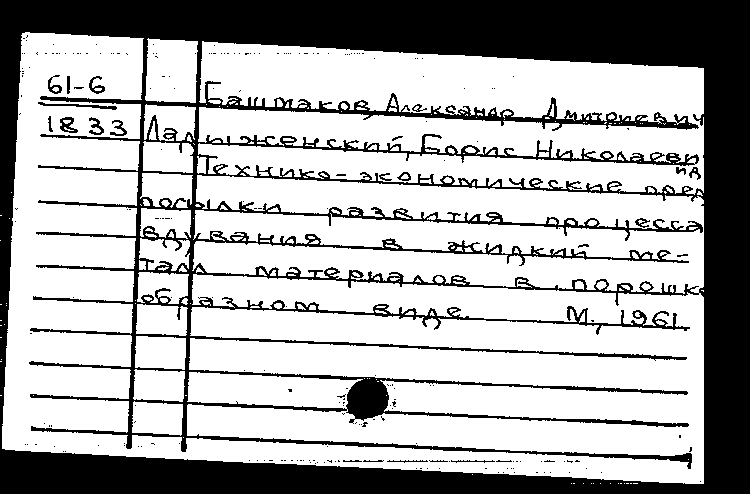 61-6 Башмаков, Александр Дмитриевич
1833 Ладыженский, Борис Николаеви
Технико-экономические пред
посылки развития процесса
вдувания в жидкий ме-
талл материалов в порошко
образном виде. М., 1961.